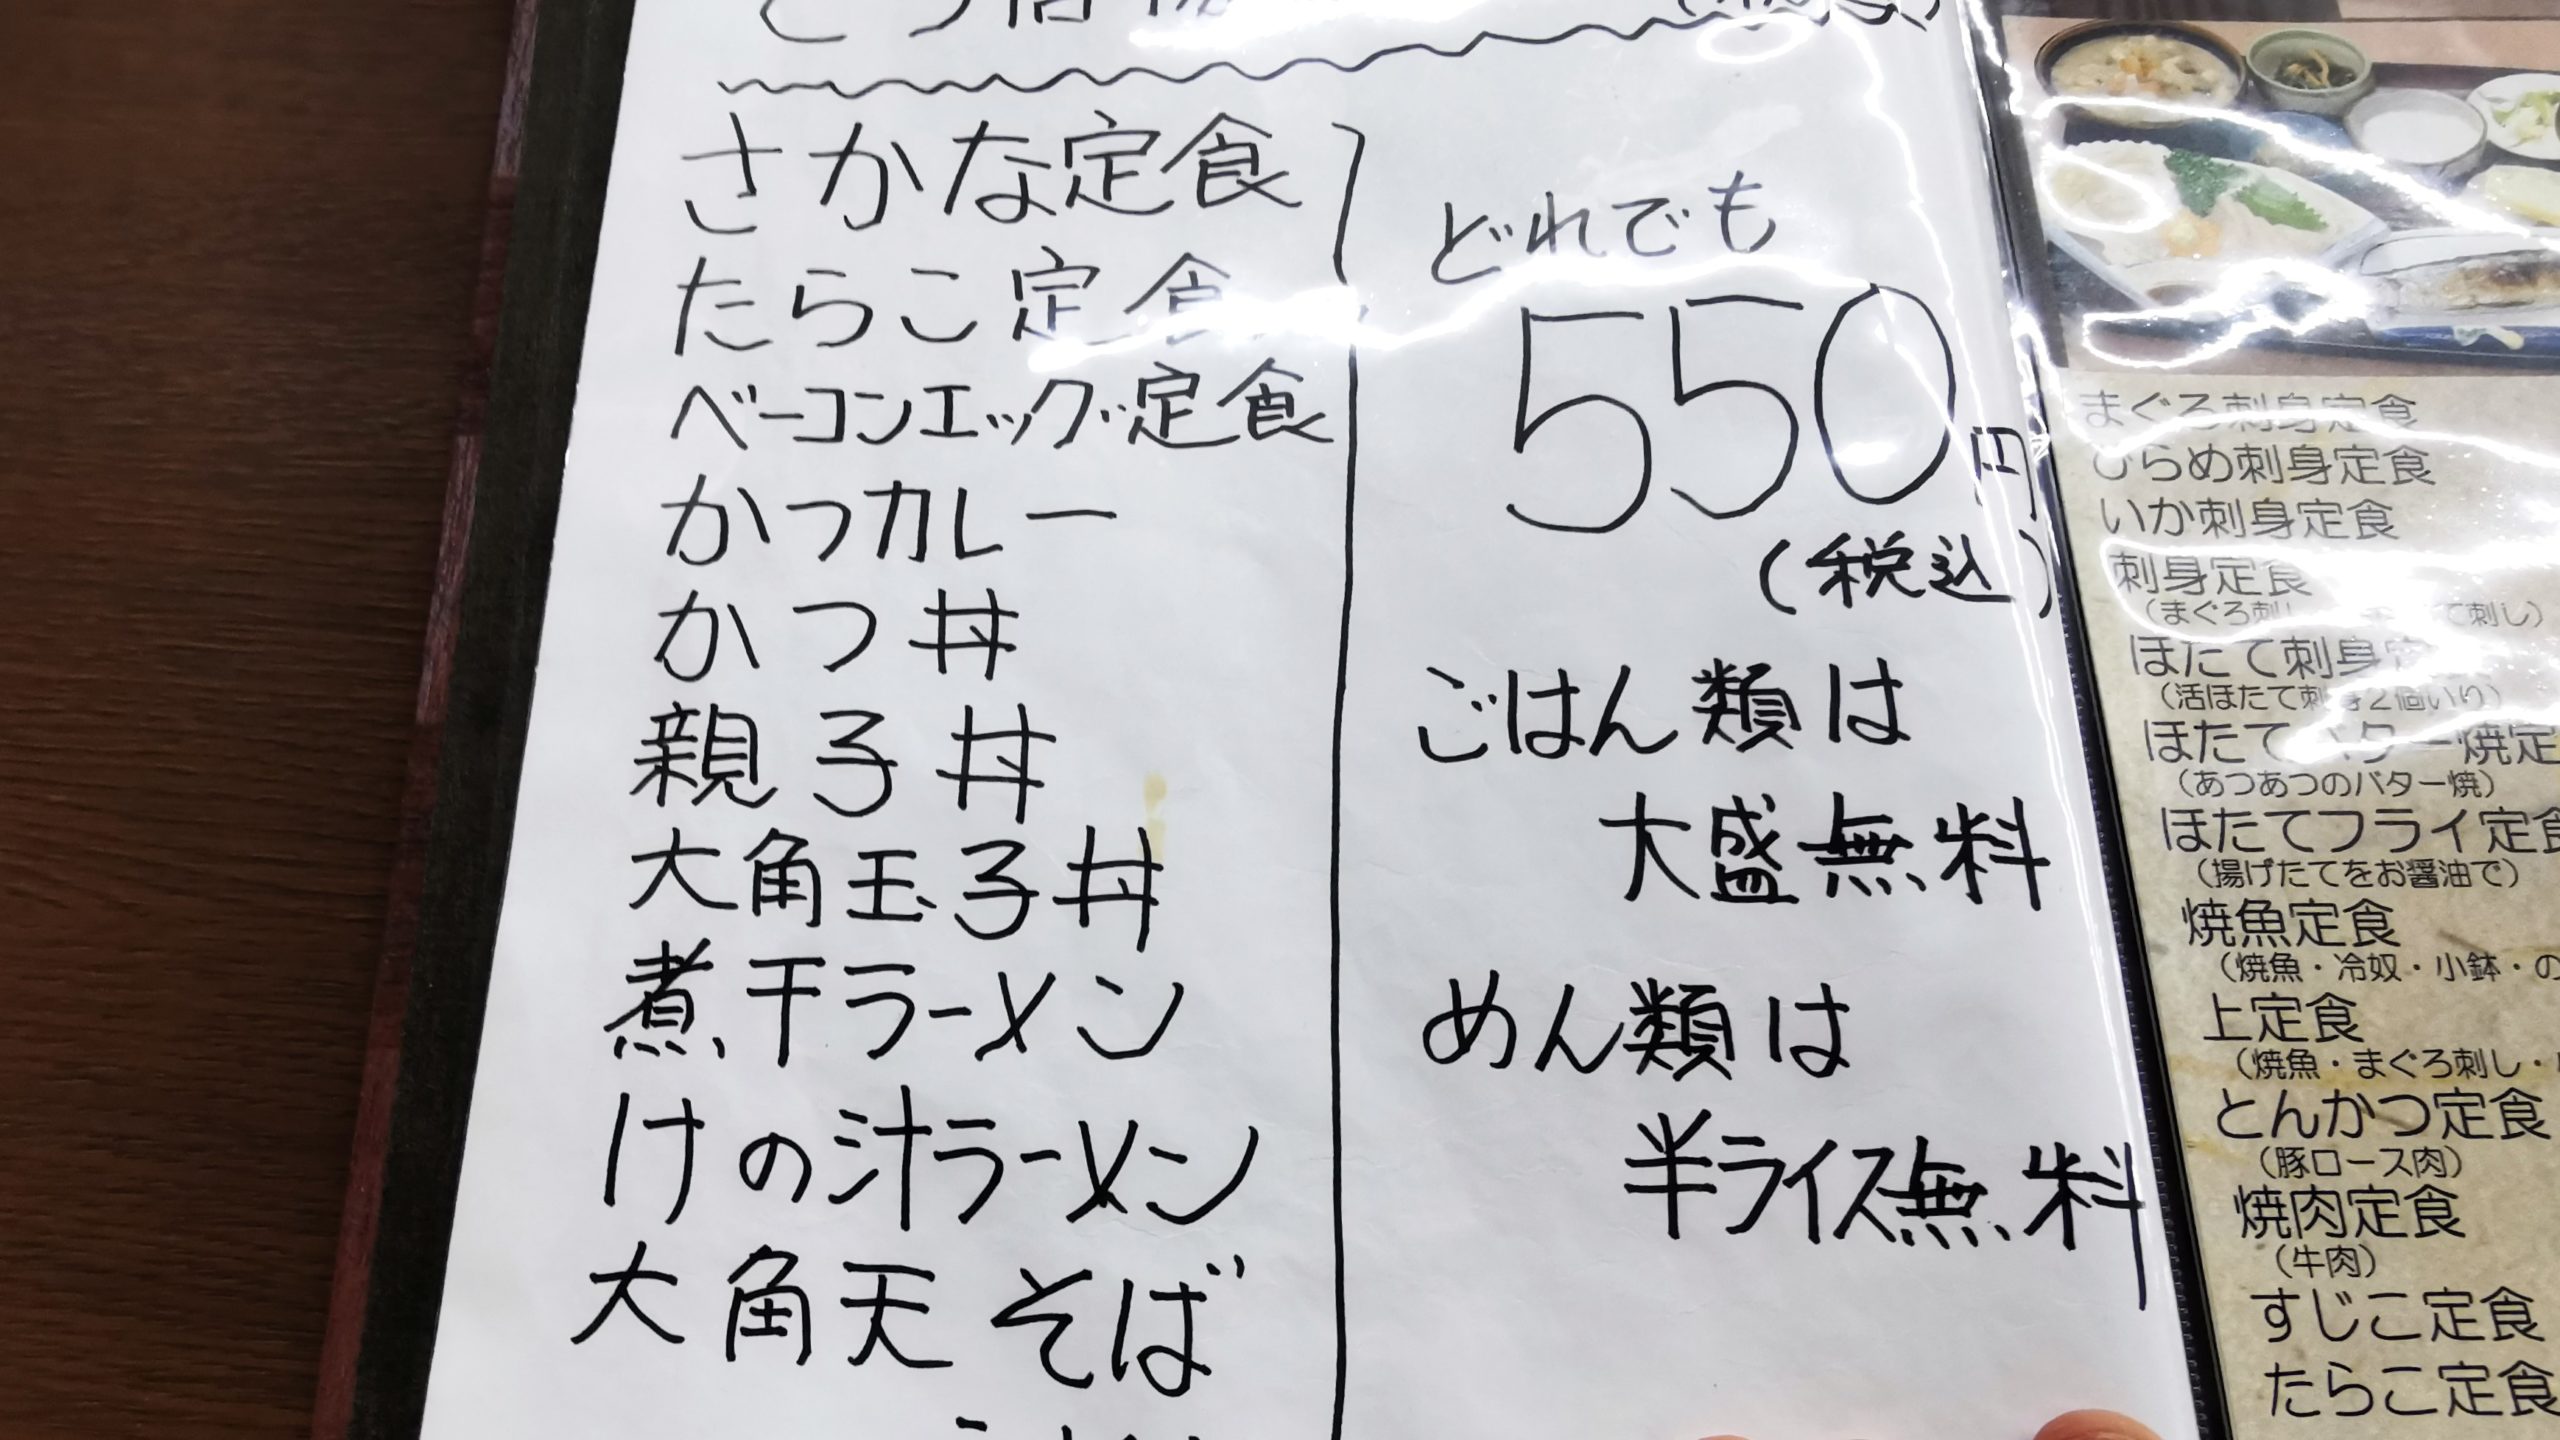 さかな定食
たらこ定食
ベーコンエッグ定食
かつカレー
かつ丼
親子丼
大角玉子丼
煮干ラーメン
けの汁ラーメン
大角天そば
どれでも
550円
(税込)
ごはん類は
大盛無料
めん類は
半ライス無料
まぐろ刺身定食
ひらめ刺身定食
いか刺身定食
刺身定食
ほたて刺身
(活ほたて刺身2個いり)
ほたてバター焼定
(あつあつのバター焼)
ほたてフライ定食
(揚げたてをお醤油で)
焼魚定食
(焼魚・冷奴・小鉢・の
上定食
(焼魚・まぐろ刺し・
とんかつ定食
(豚ロース肉)
焼肉定食
(牛肉)
すじこ定食
たらこ定食